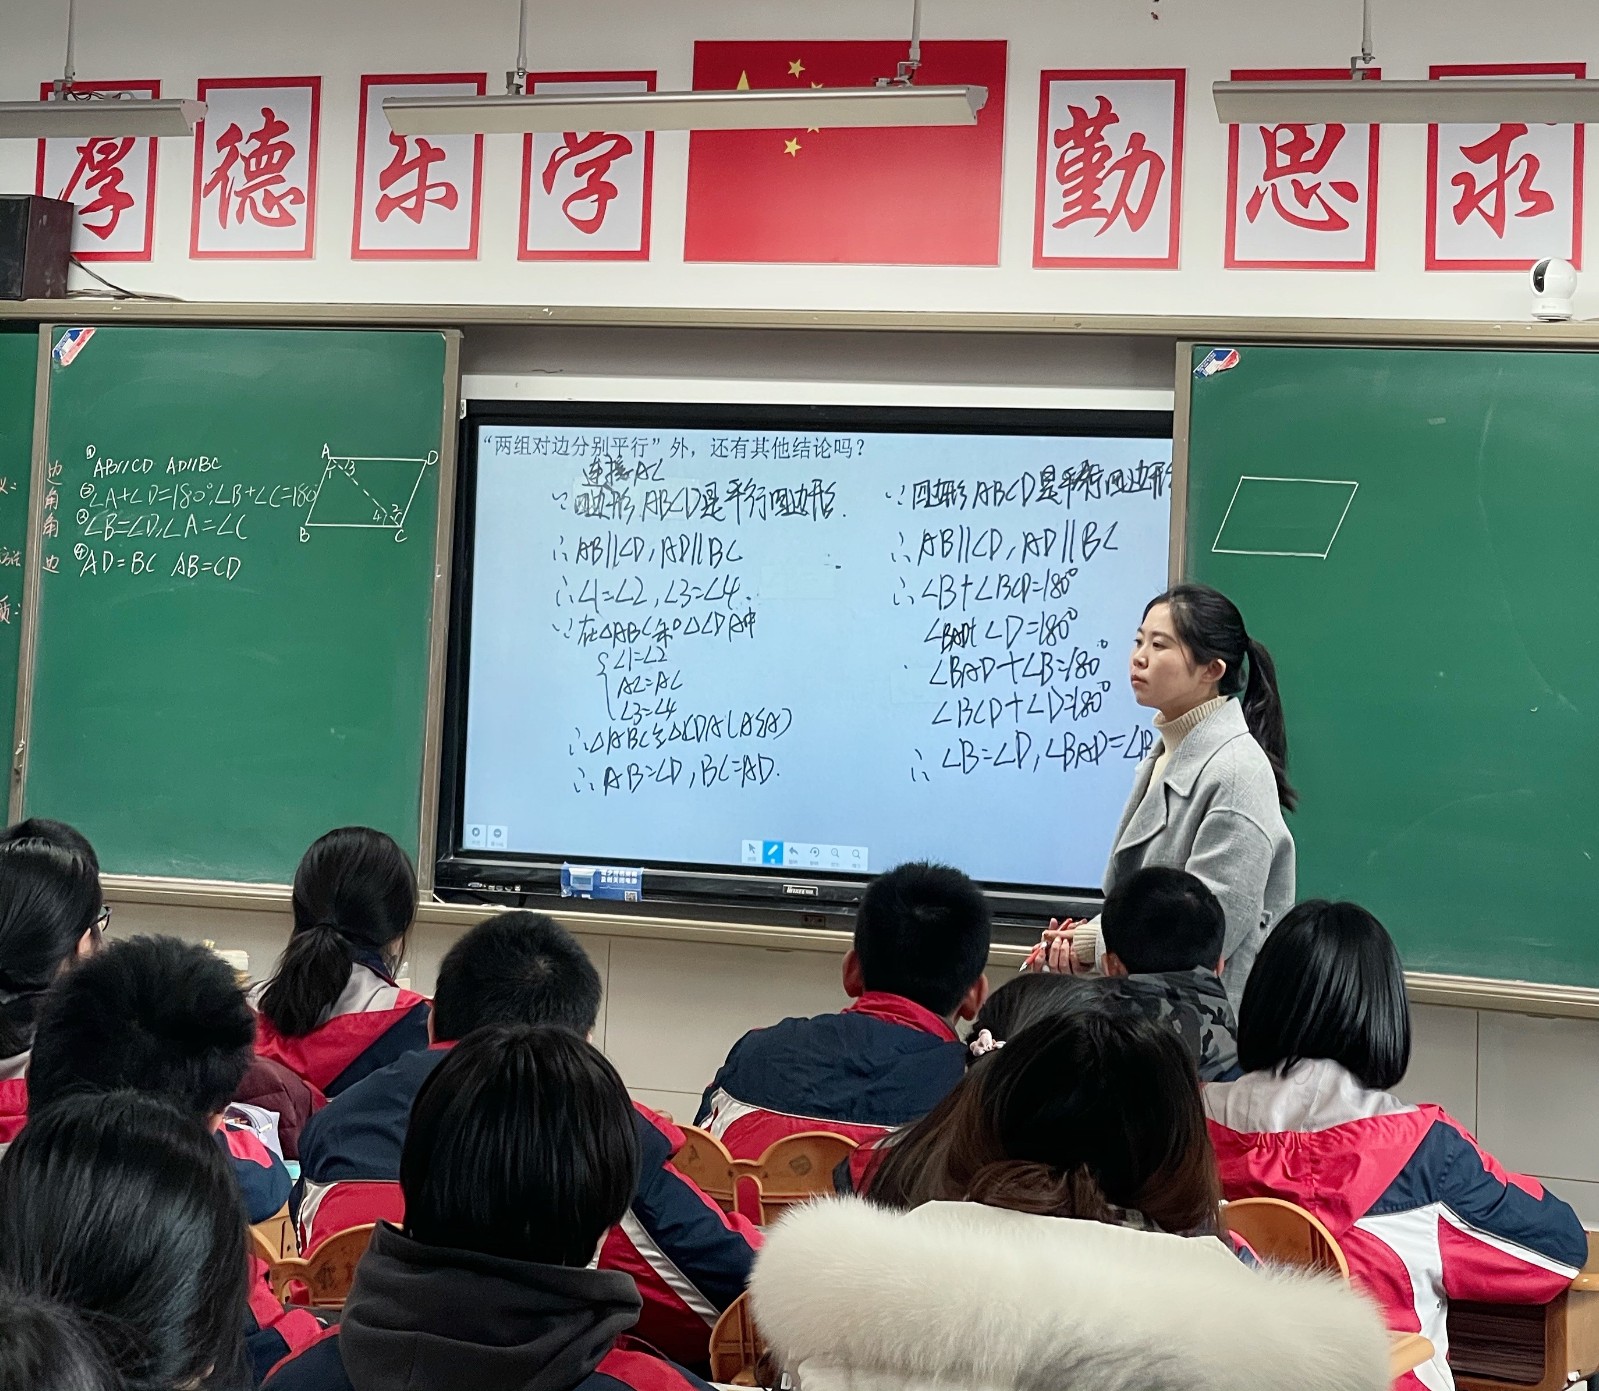 厚 德 乐 学 勤 思 求
边 ① AB//CD AD//BC
角 ② ∠A+∠D=180° ∠B+∠C=180°
角 ③ ∠B=∠D, ∠A=∠C
边 ④ AD=BC AB=CD
A D
1 3
4 2
B C
“两组对边分别平行”外，还有其他结论吗？
连接AC
∵四边形ABCD是平行四边形.
∴AB∥CD, AD∥BC
∴∠1=∠2, ∠3=∠4.
∵在△ABC和△CDA中
∠1=∠2
AC=AC
∠3=∠4
∴△ABC≌△CDA(ASA)
∴AB=CD, BC=AD.
∵四边形ABCD是平行四边形
∴AB∥CD, AD∥BC
∴∠B+∠BCD=180°
∠BAD+∠D=180°
∠BAD+∠B=180°
∠BCD+∠D=180°
∴∠B=∠D, ∠BAD=∠B